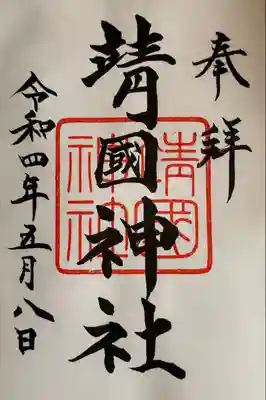 奉拝
靖國神社
靖国神社
令和四年五月八日